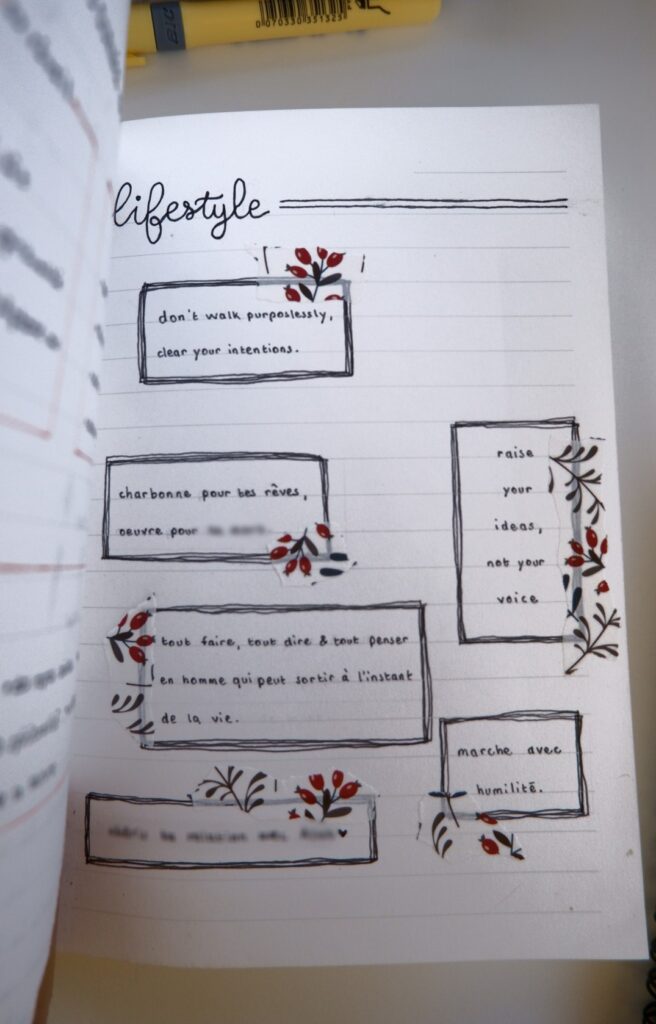 BIC
0 070330 351325
lifestyle
don't walk purposlessly,
clear your intentions.
charbonne pour tes rêves,
oeuvre pour
raise
your
ideas,
not your
voice
tout faire, tout dire & tout penser
en homme qui peut sortir à l'instant
de la vie.
marche avec
humilité.